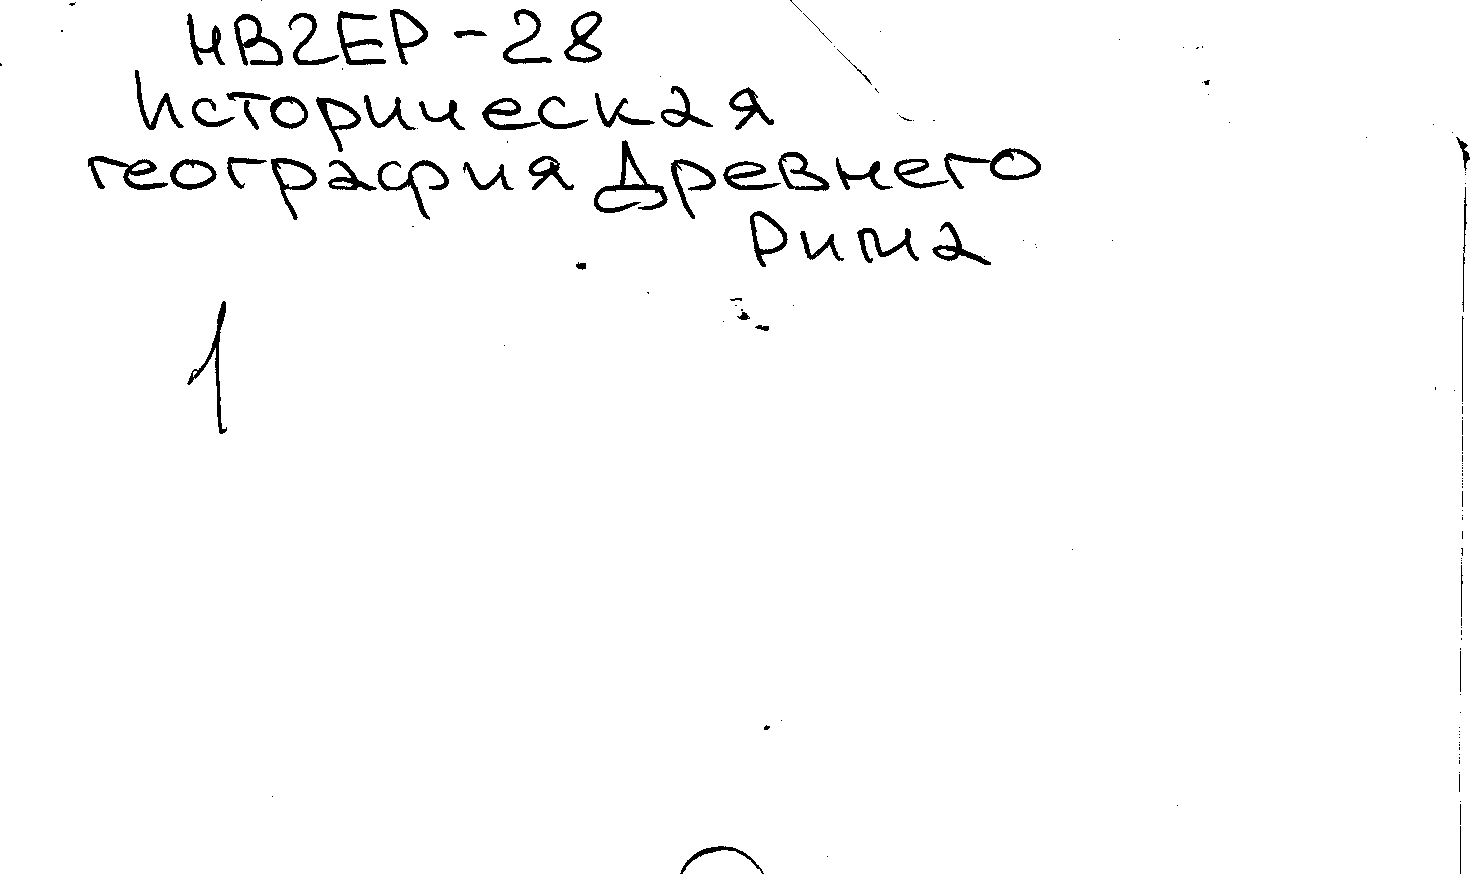 НВ2ЕР-28
Историческая
география Древнего
Рима
1